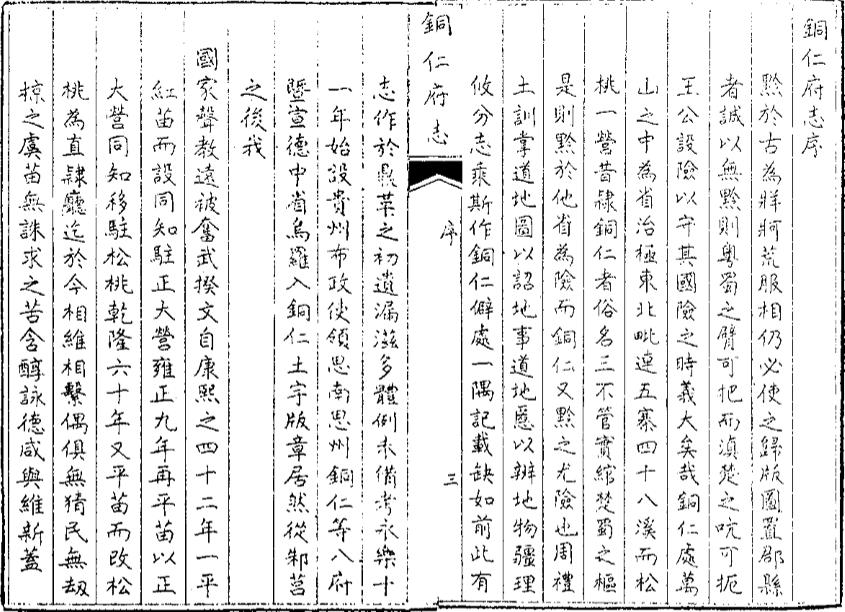 銅仁府志序
黔於古為牂牁荒服相仍必使之歸版圖置郡縣
者誠以無黔則粵蜀之臂可把而滇楚之吭可扼
王公設險以守其國險之時義大矣哉銅仁處萬
山之中為省治極東北毗連五寨四十八溪而松
桃一營昔隸銅仁者俗名三不管實綰楚蜀之樞
是則黔於他省為險而銅仁又黔之尤險也周禮
土訓掌道地圖以詔地事道地慝以辨地物疆理
攸分志乘斯作銅仁僻處一隅記載缺如前此有
銅仁府志
序
三
志作於鼎革之初遺漏滋多體例未備考永樂十
一年始設貴州布政使領思南思州銅仁等八府
暨宣德中省烏羅入銅仁土宇版章居然從邾莒
之後我
國家聲教遠被奮武揆文自康熙之四十二年一平
紅苗而設同知駐正大營雍正九年再平苗以正
大營同知移駐松桃乾隆六十年又平苗而改松
桃為直隸廳迄於今相維相繫偶俱無猜民無刼
掠之虞苗無誅求之苦含醇詠德咸與維新蓋